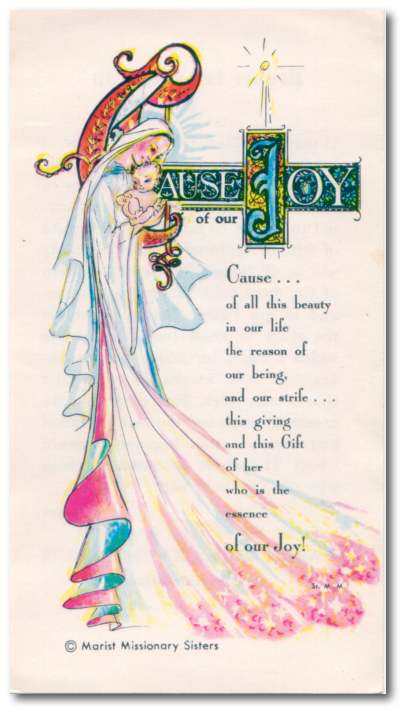 CAUSE
of our
JOY
Cause . . .
of all this beauty
in our life
the reason of
our being,
and our strife . . .
this giving
and this Gift
of her
who is the
essence
of our Joy!
Sr. M. M.
© Marist Missionary Sisters